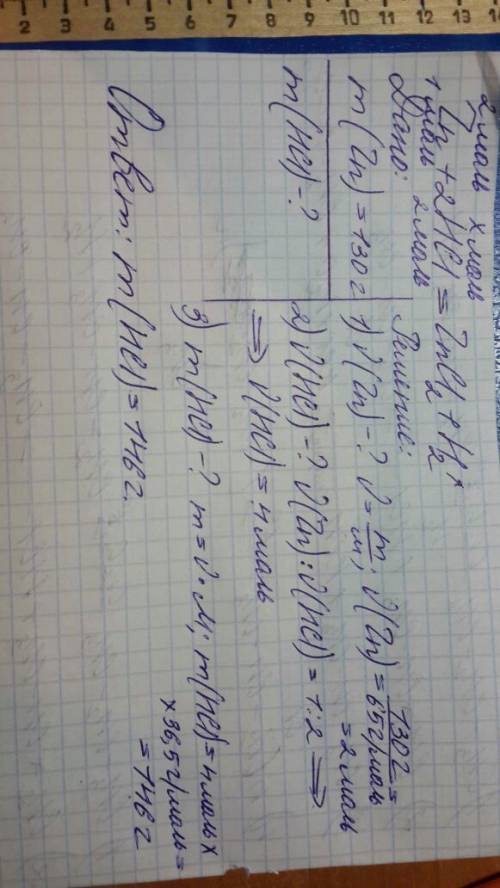 2 3 4 5 6 7 8 9 10 11 12 13 14
2 моль x моль
Zn + 2HCl = ZnCl₂ + H₂↑
1 моль 2 моль
Дано:
m(Zn) = 130 г
m(HCl) - ?
Решение:
1) ν(Zn) - ? ν = m/M; ν(Zn) = 130 г / 65 г/моль =
= 2 моль
2) ν(HCl) - ? ν(Zn) : ν(HCl) = 1 : 2 ⟹
⟹ ν(HCl) = 4 моль
3) m(HCl) - ? m = ν · M; m(HCl) = 4 моль x
x 36,5 г/моль =
= 146 г
Ответ: m(HCl) = 146 г.